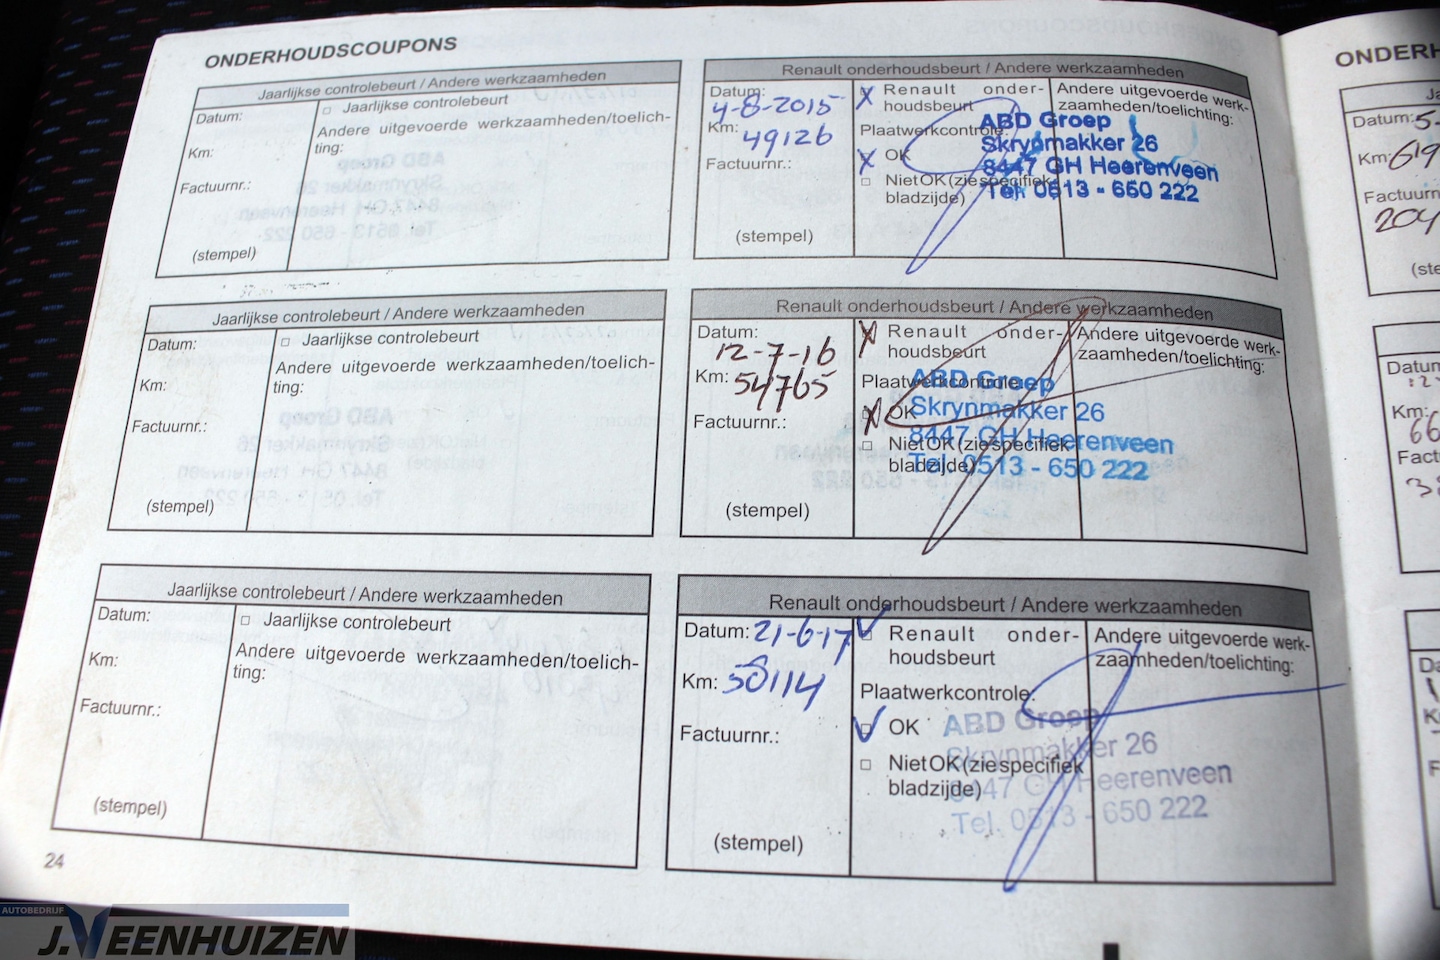 ONDERHOUDSCOUPONS
Jaarlijkse controlebeurt / Andere werkzaamheden
Datum:
□ Jaarlijkse controlebeurt
Andere uitgevoerde werkzaamheden/toelich-
ting:
Km:
Factuurnr.:
(stempel)
Renault onderhoudsbeurt / Andere werkzaamheden
Datum:
4-8-2015
Km:
49126
Factuurnr.:
(stempel)
Renault onder-
houdsbeurt
Plaatwerkcontrole:
OK
□ Niet OK (zie specifiek
bladzijde)
Andere uitgevoerde werk-
zaamheden/toelichting:
ABD Groep
Skrynmakker 26
8447 GH Heerenveen
Tel. 0513 - 650 222
Jaarlijkse controlebeurt / Andere werkzaamheden
Datum:
□ Jaarlijkse controlebeurt
Andere uitgevoerde werkzaamheden/toelich-
ting:
Km:
Factuurnr.:
(stempel)
Renault onderhoudsbeurt / Andere werkzaamheden
Datum:
12-7-16
Km: 54765
Factuurnr.:
(stempel)
Renault onder-
houdsbeurt
Plaatwerkcontrole:
OK
□ Niet OK (zie specifiek
bladzijde)
Andere uitgevoerde werk-
zaamheden/toelichting:
ABD Groep
Skrynmakker 26
8447 GH Heerenveen
Tel. 0513 - 650 222
Jaarlijkse controlebeurt / Andere werkzaamheden
Datum:
□ Jaarlijkse controlebeurt
Andere uitgevoerde werkzaamheden/toelich-
ting:
Km:
Factuurnr.:
(stempel)
Renault onderhoudsbeurt / Andere werkzaamheden
Datum: 21-6-17
Km: 58114
Factuurnr.:
(stempel)
Renault onder-
houdsbeurt
Plaatwerkcontrole:
OK
□ Niet OK (zie specifiek
bladzijde)
Andere uitgevoerde werk-
zaamheden/toelichting:
ABD Groep
Skrynmakker 26
8447 GH Heerenveen
Tel. 0513 - 650 222
24
ONDERH
Ja
Datum: 5-
Km: 619
Factuurn
204
(ste
Datum
Km:
66
Fact
AUTOBEDRIJF
J.VEENHUIZEN